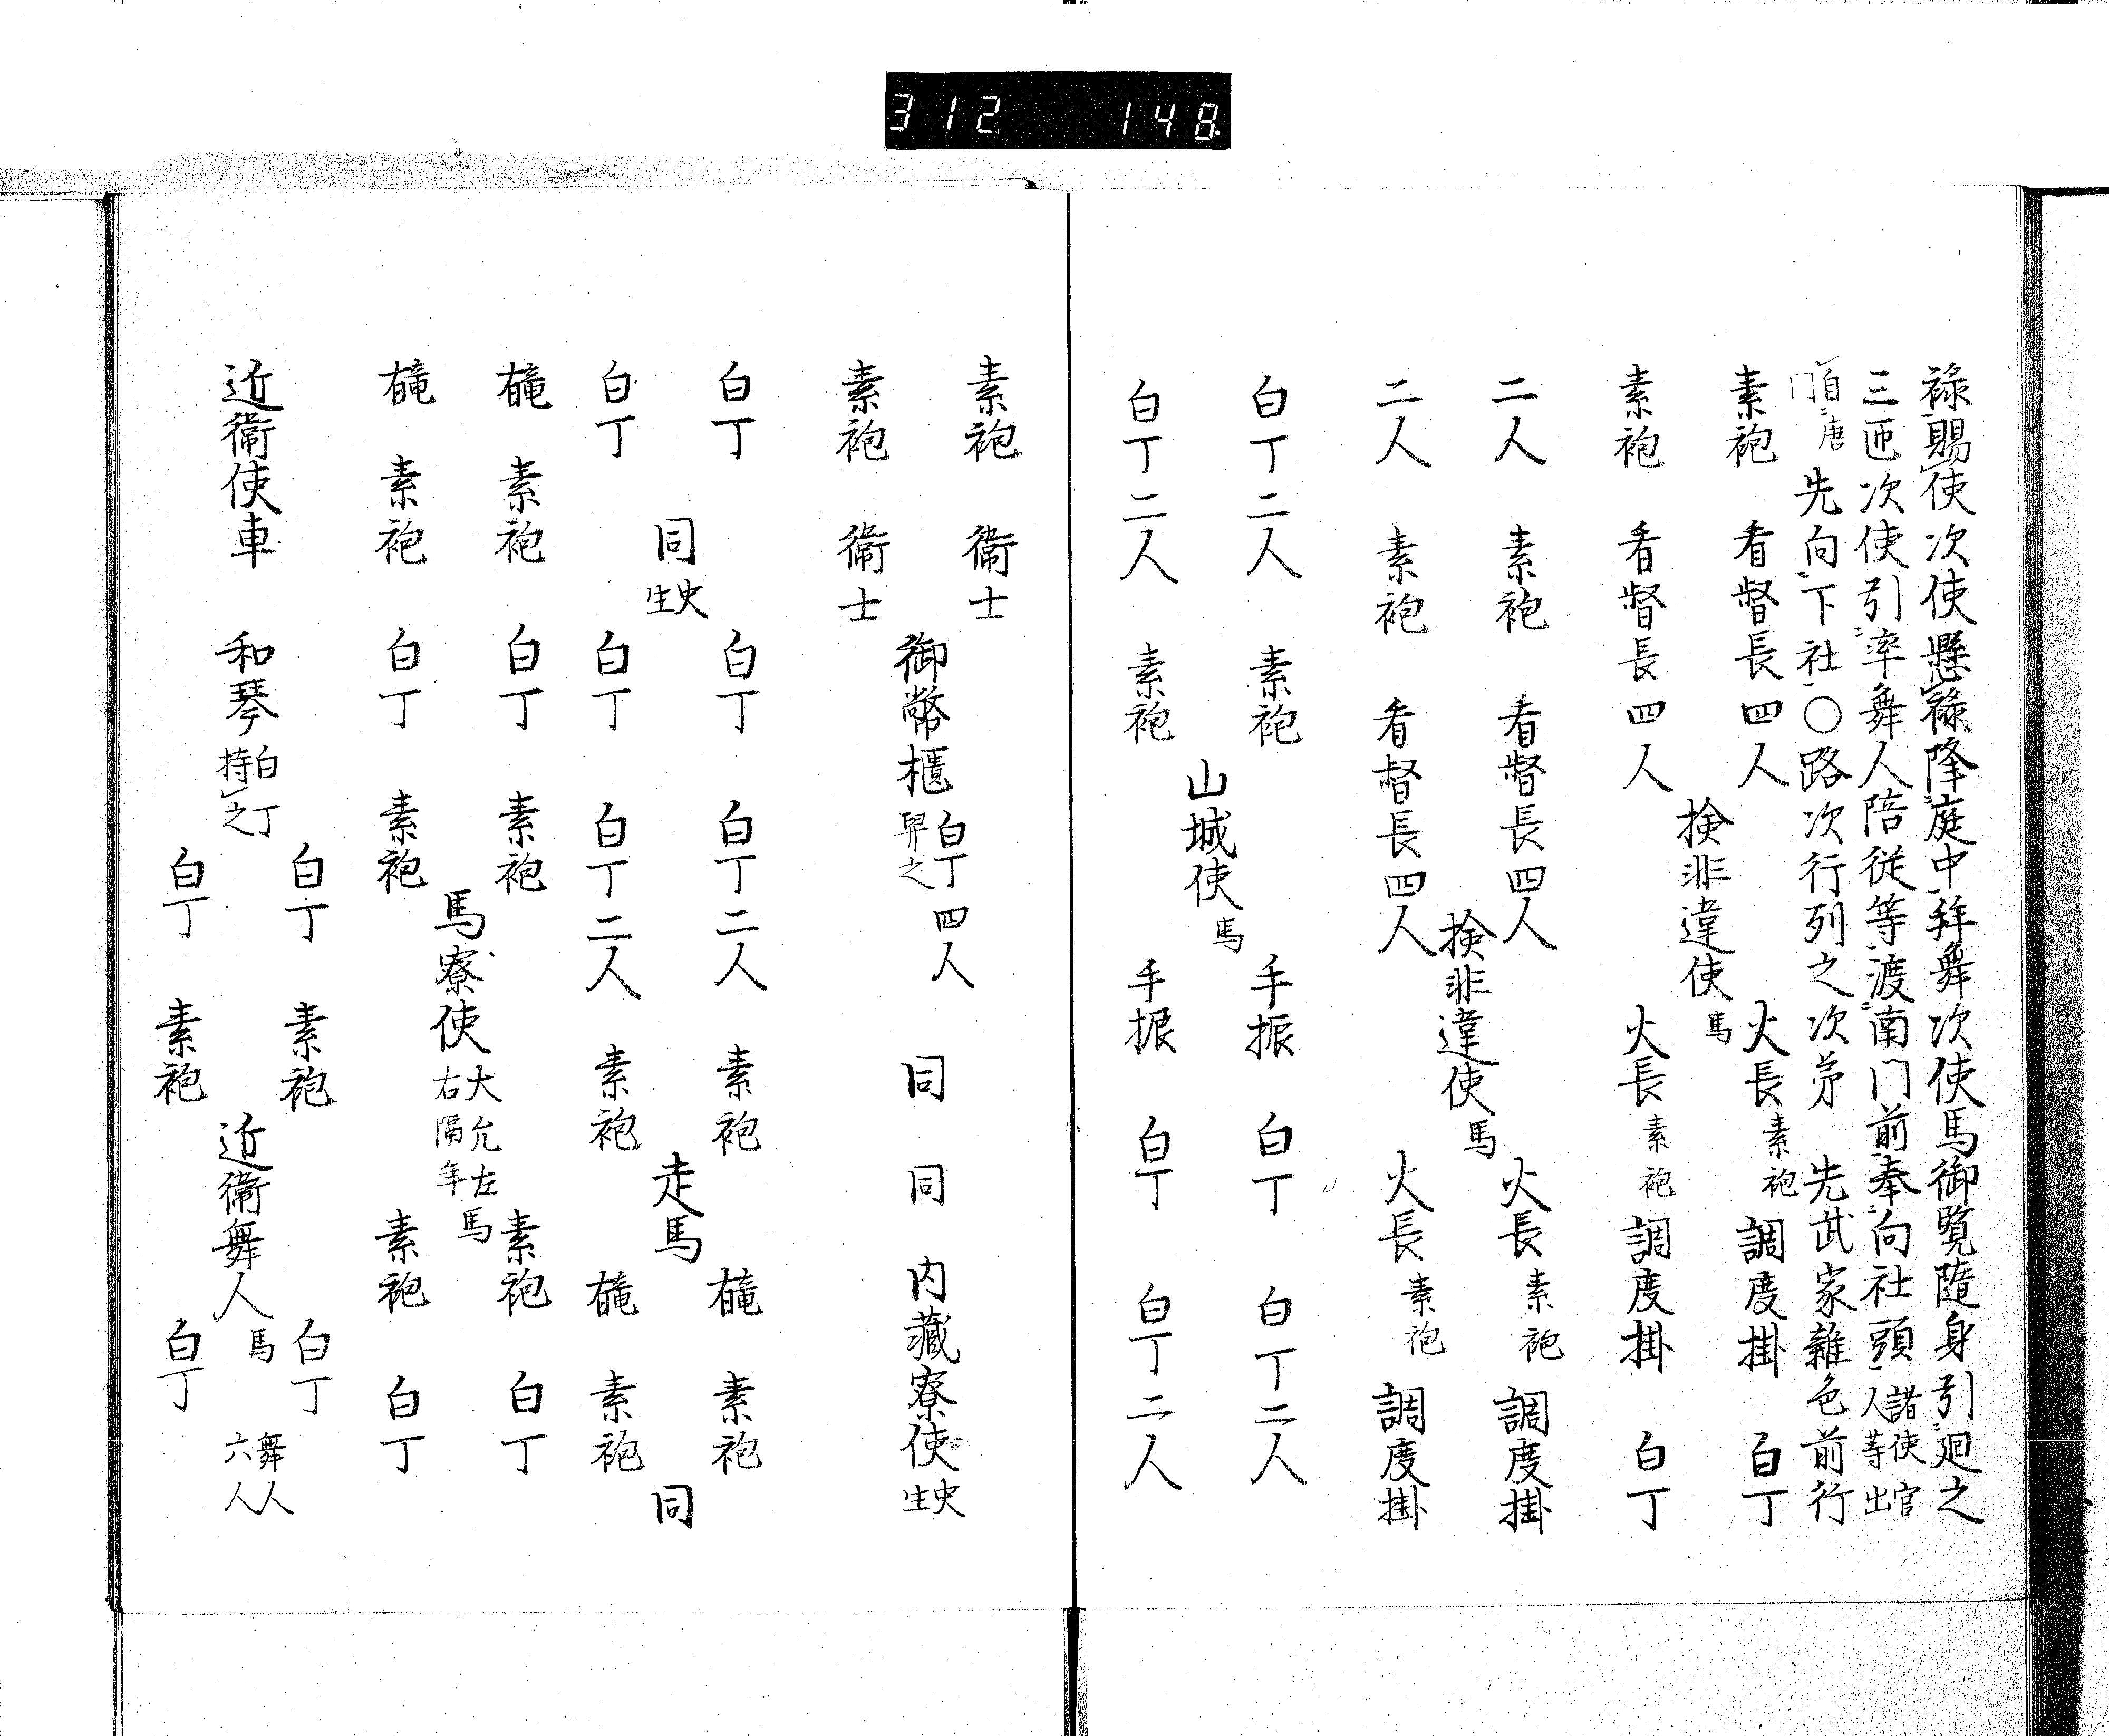 312 148
禄賜使次使懸禄降庭中拜舞次使馬御覧隨身引廻之
三匝次使引率舞人陪従等渡南門前奉向社頭諸使官人等出
自唐門先向下社〇路次行列之次第 先武家雜色前行
素袍 看督長四人 火長素袍 調度掛 白丁
検非違使馬
素袍 看督長四人 火長素袍 調度掛 白丁
二人 素袍 看督長四人 火長素袍 調度掛
検非違使馬
二人 素袍 看督長四人 火長素袍 調度掛
白丁二人 素袍 手振 白丁 白丁二人
山城使馬
白丁二人 素袍 手振 白丁 白丁二人
素袍 衞士
御幣櫃白丁四人舁之 同 同 内藏寮使史生
素袍 衞士
白丁 白丁 白丁二人 素袍 䰇 素袍
同史生 走馬 同
白丁 白丁 白丁二人 素袍 素袍
素袍 白丁 素袍 素袍 白丁
馬寮使大允左右隔年馬
素袍 白丁 素袍 素袍 白丁
白丁 素袍 白丁
近衞使車 和琴白丁持之 近衞舞人馬 舞人六人
白丁 素袍 白丁